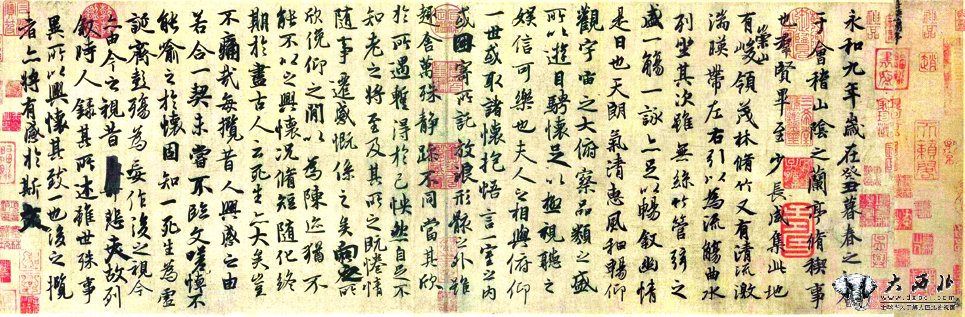 永和九年歲在癸丑暮春之初
于會稽山陰之蘭亭脩禊事
也羣賢畢至少長咸集此地
有崇山峻領茂林脩竹又有清流激
湍暎帶左右引以為流觴曲水
列坐其次雖無絲竹管弦之
盛一觴一詠亦足以暢敘幽情
是日也天朗氣清惠風和暢仰
觀宇宙之大俯察品類之盛
所以遊目騁懷足以極視聽之
娛信可樂也夫人之相與俯仰
一世或取諸懷抱悟言一室之內
或因寄所託放浪形骸之外雖
趣舍萬殊靜躁不同當其欣
於所遇蹔得於己怏然自足不
知老之將至及其所之既惓情
隨事遷感慨係之矣向之所
欣俛仰之閒以為陳迹猶不
能不以之興懷況脩短隨化終
期於盡古人云死生亦大矣豈
不痛哉每攬昔人興感之由
若合一契未嘗不臨文嗟悼不
能喻之於懷固知一死生為虛
誕齊彭殤為妄作後之視今
亦由今之視昔悲夫故列
敘時人錄其所述雖世殊事
異所以興懷其致一也後之攬
者亦將有感於斯文
大西北